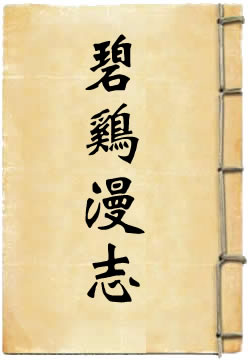 碧鷄漫志